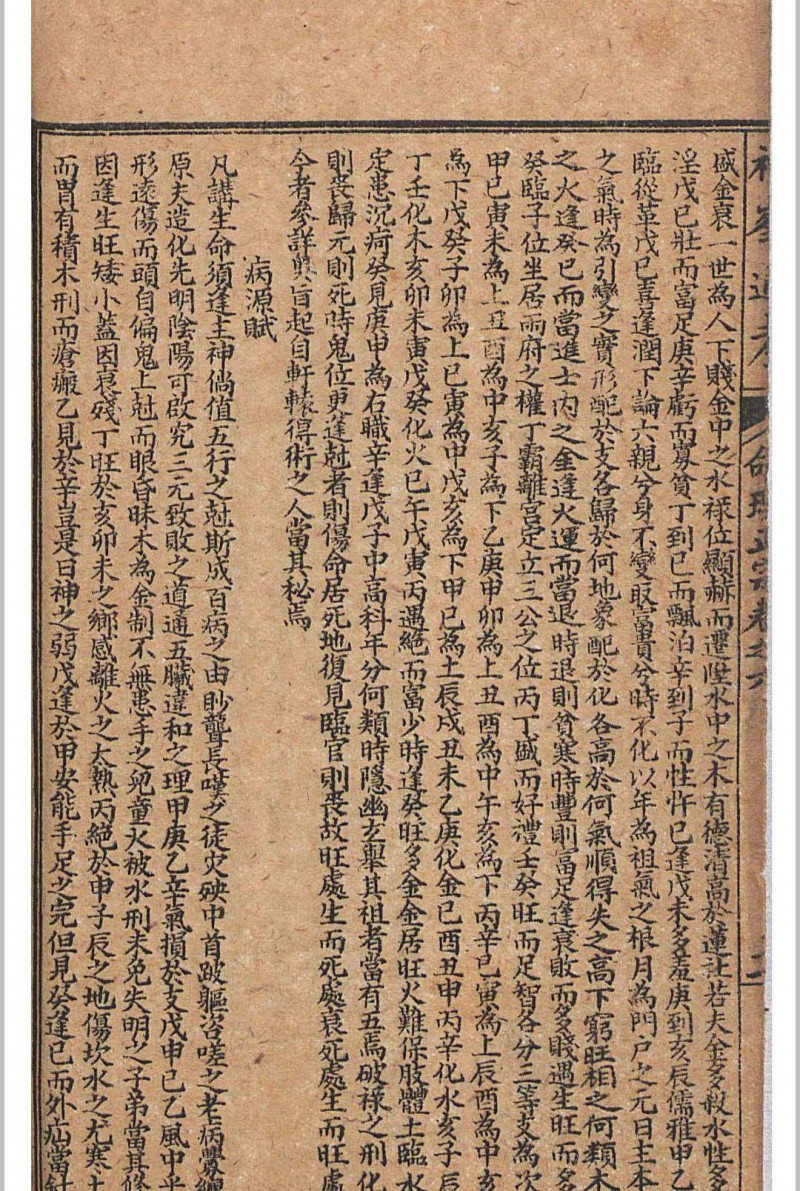 盛金衰一世為人下賤金中之水祿位顯赫而遷陞水中之木有德清高於蓮社若夫金多殺水性多
淫戊巳壯而富足庚辛虧而寡貧丁到巳而飄泊辛到子而性忤巳逢戊未多羞庚到亥辰儒雅甲乙
臨從革戊巳喜逢潤下論六親兮身不變取富貴兮時不化以年為祖氣之根月為門戶之元日主本
之氣時為引變之寶形配於支各歸於何地象配於化各高於何氣順得失之高下窮旺相之何類木
之火逢癸巳而當進士內之金逢火運而當退時退則貧寒時豐則富足逢衰敗而多賤遇生旺而多
癸臨子位坐居兩府之權丁霸離宮定立三公之位丙丁盛而好禮壬癸旺而足智各分三等支為次
甲巳寅未為上丑酉為中亥子為下乙庚申卯為上丑酉為中午亥為下丙辛巳寅為上辰酉為中亥
為下戊癸子卯為上巳寅為中戊亥為下甲巳為土辰戌丑未乙庚化金巳酉丑申丙辛化水亥子辰
丁壬化木亥卯未寅戊癸化火巳午戊寅丙遇絕而富少時逢癸旺多金金居旺火難保肢體土臨水
定患沉疴癸見庚申為右職辛逢戊子中高科年分何類時隱幽玄舉其祖者當有五焉破祿之刑化
則喪歸元則死時鬼位更逢尅者則傷命居死地復見臨官則喪故旺處生而死處衰死處生而旺處
今者參詳奧旨起自軒轅得術之人當其秘焉
病源賦
凡講生命須逢主神倘值五行之尅斯成百病之由眇聾長嘆之徒灾殃中首跛軀咨嗟之老病爨纏
原夫造化先明陰陽可啟究三元致敗之道通五臟違和之理甲庚乙辛氣損於支戊申巳乙風中半
形遠傷而頭自偏鬼上尅而眼昏昧木為金制不無患手之兒童火被水刑未免失明之子弟當其修
因逢生旺矮小蓋因衰殘丁旺於亥卯未之鄉感離火之太熱丙絕於申子辰之地傷坎水之尤寒土
而胃有積木刑而瘡瘢乙見於辛豈是日神之弱戊逢於甲安能手足之完但見癸逢巳而外疝當針